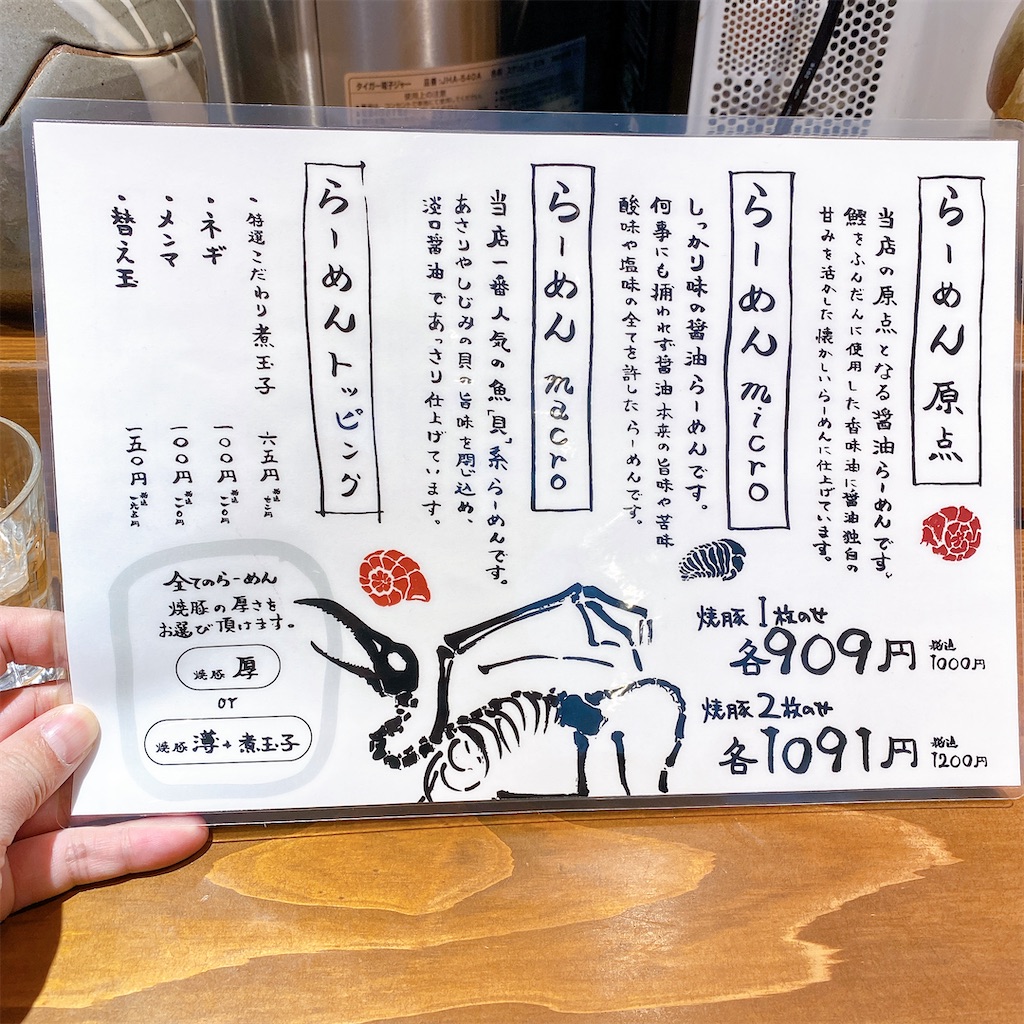 タイガー電子ジャー
品番:JMA-540A
使用上の注意
らーめん 原点
当店の原点となる醤油らーめんです。
鰹をふんだんに使用した香味油に醤油独自の
甘みを活かした懐かしいらーめんに仕上げています。
らーめん micro
しっかり味の醤油らーめんです。
何事にも捕われず醤油本来の旨味や苦味
酸味や塩味の全てを許したらーめんです。
らーめん macro
当店一番人気の魚「貝」系らーめんです。
あさりやしじみの貝の旨味を閉じ込め、
淡口醤油であっさり仕上げています。
らーめんトッピング
・特選こだわり煮玉子 六五円 税込 七二円
・ネギ 一〇〇円 税込 一一〇円
・メンマ 一〇〇円 税込 一一〇円
・替え玉 一五〇円 税込 一六五円
焼豚1枚のせ
各909円 税込 1000円
焼豚2枚のせ
各1091円 税込 1200円
全てのらーめん
焼豚の厚さを
お選び頂けます。
焼豚 厚
or
焼豚 薄+煮玉子